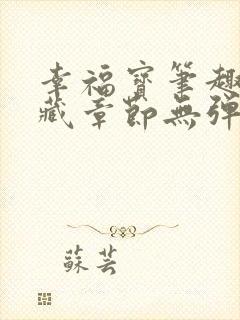 幸福寶筆趣
藏章節無彈
蘇芸